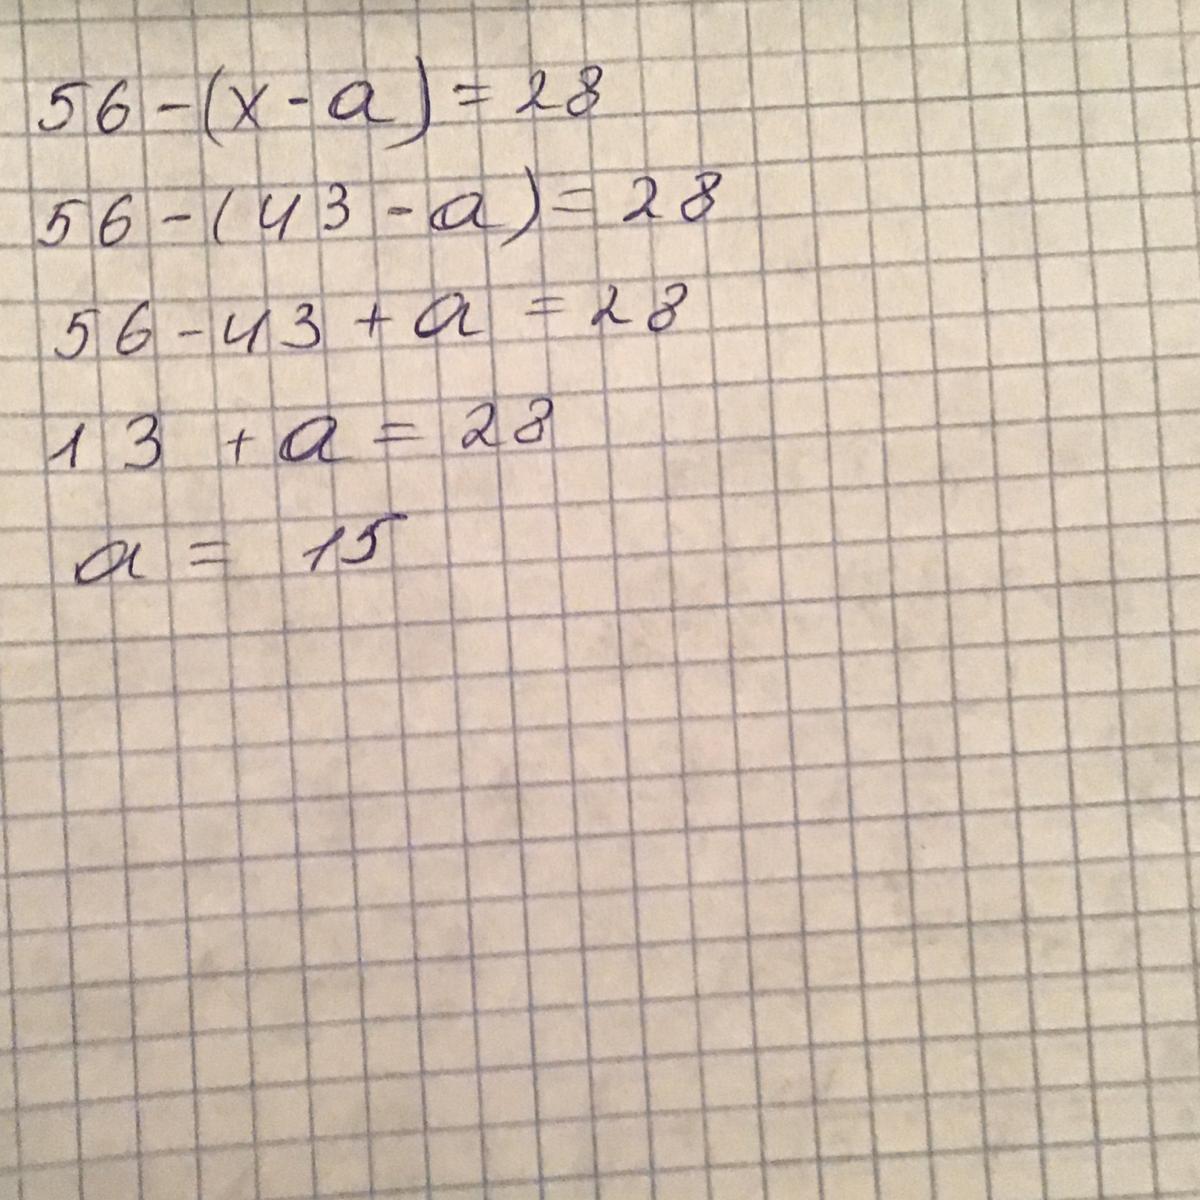 56-(x-a)=28
56-(43-a)=28
56-43+a=28
13+a=28
a=15